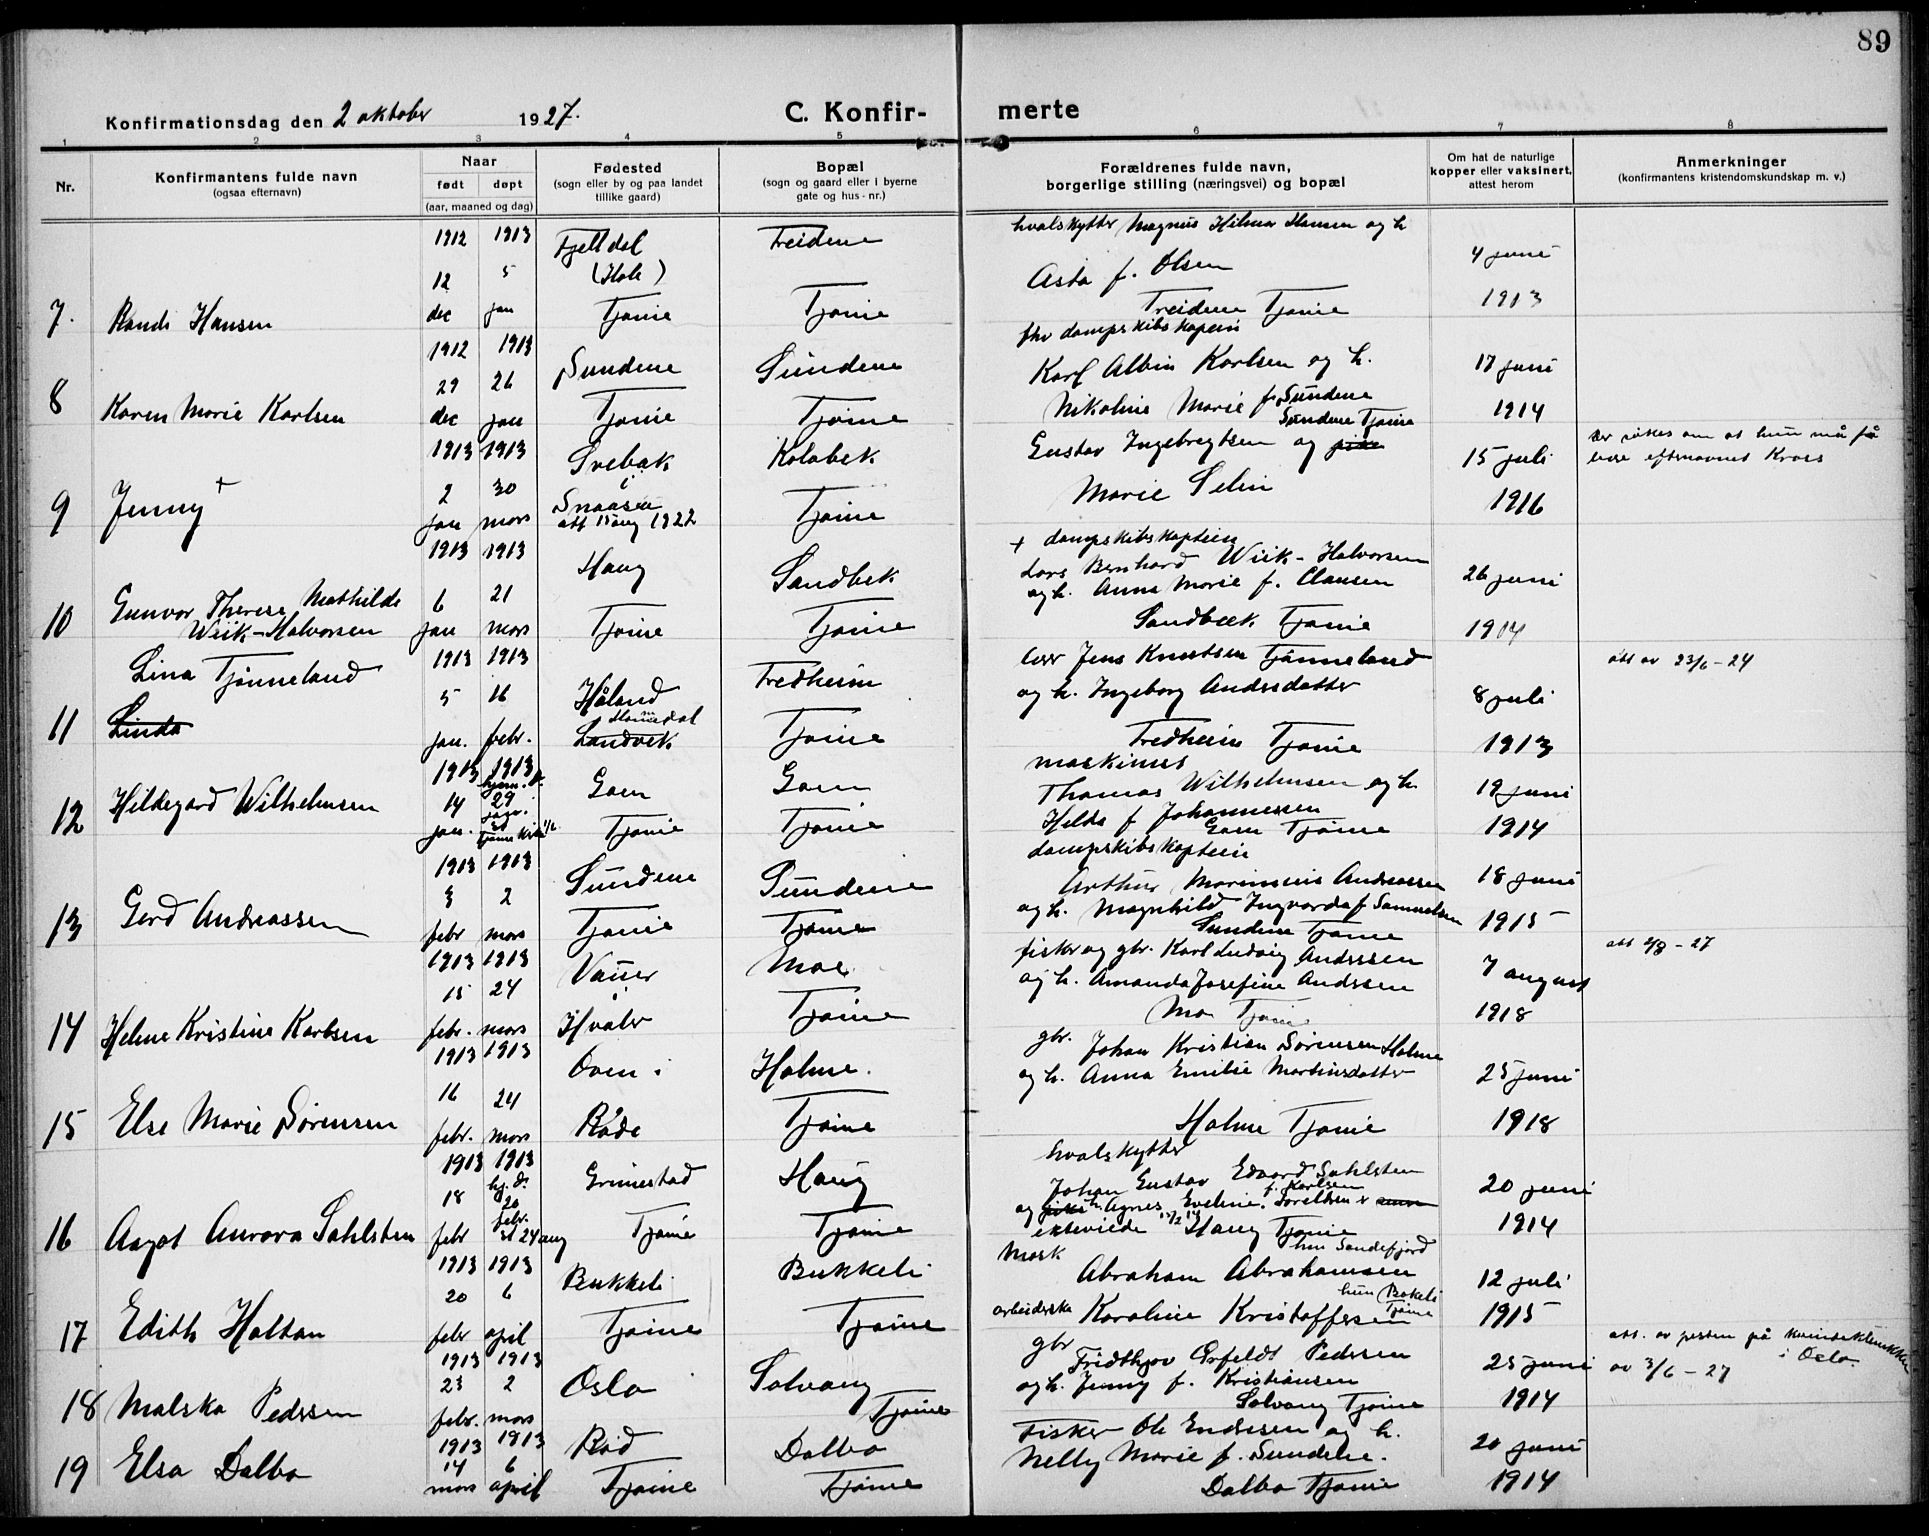 89
Konfirmationsdag den 2 oktober 1927. C. Konfirmerte
1 2 3 4 5 6 7 8
Nr.
Konfirmantens fulde navn
(ogsaa efternavn)
Naar
født døpt
(aar, maaned og dag)
Fødested
(sogn eller by og paa landet
tillike gaard)
Bopæl
(sogn og gaard eller i byerne
gate og hus-nr.)
Forældrenes fulde navn,
borgerlige stilling (næringsvei) og bopæl
Om hat de naturlige
kopper eller vaksinert,
attest herom
Anmerkninger
(konfirmantens kristendomskundskap m. v.)
7. Randi Hansen
1912 12 dec
1913 5 jan
Fjelldal
Tjøme
Treidene
Tjøme
hvalskytter Magnus Hilmar Hansen og h
Asta f. Olsen
Treidene Tjøme
4 juni
1913
8 Karen Marie Karlsen
1912 29 dec
1913 26 jan
Sundene
Tjøme
Sundene
Tjøme
fhv dampskibskaptein
Karl Albin Karlsen og h.
Nikoline Marie f. Sundene
Sundene Tjøme
17 juni
1914
9 Jenny +
1913 2 jan
1913 30 mars
Svebak
i
Snaasen
att 15 aug 1922
Kolabek
Tjøme
Gustav Ingebregtsen og pike
Marie Selin
15 juli
1916
der søkes om at hun må få
bære efternavnet Kross
10 Gunvor Therese Mathilde
Wiik-Halvorsen
1913 6 jan
1913 21 mars
Haug
Tjøme
Sandbek
Tjøme
+ dampskibskaptein
Lars Bernhard Wiik-Halvorsen
og h. Anna Marie f. Clausen
Sandbek Tjøme
26 juni
1914
11 Lina Tjønneland
Linda
1913 5 jan.
1913 16 febr.
Håland
Landvik
Fredheim
Tjøme
Jens Knutsen Tjønneland
og h. Ingeborg Andersdatter
Fredheim Tjøme
8 juli
1913
att av 23/6-24
12 Hildegard Wilhelmsen
1913 14 jan.
1913 hjem. d. 29
Tjøme Kirke
Goen
Tjøme
Goen
Tjøme
maskinist
Thomas Wilhelmsen og h.
Hilda f Johannessen
Goen Tjøme
19 juni
1914
13 Gerd Andreassen
1913 3 febr
1913 2 mars
Sundene
Tjøme
Sundene
Tjøme
dampskibskaptein
Arthur Marinius Andreassen
og h. Magnhild Ingvarda f Samuelsen
Sundene Tjøme
18 juni
1915
14 Helene Kristine Karlsen
1913 15 febr.
1913 24 mars
Vauer
i
Hvaler
Moe
Tjøme
fisker og gbr. Karl Ludvig Andersen
og h. Amanda Josefine Andersen
Mo Tjøme
7 august
1918
att 2/8-27
15 Else Marie Sørensen
1913 16 febr.
1913 24 mars
Oven i
Råde
Holme.
Tjøme
gbr.
Johan Kristian Sørensen Holme
og h. Anna Emilie Martinsdatter
Holme Tjøme
25 juni
1918
16 Aagot Aurora Sahlsten
1913 18 febr
1913 hj. d. 20 febr. st 24 aug
Grimestad
Tjøme
Haug
Tjøme
hvalskytter
Johan Gustav Edvard Sahlsten
og pike h. Agnes Eveline f. Karlsen
ekteviede Haug Tjøme
20 juni
1914
17 Edith Holtan
1913 20 febr
1913 6 april
Bukkeli
Tjøme
Bukkeli
Tjøme
Mask
Abraham Abrahamsen
hm Sandefjord
arbeiderske Karoline Kristoffersen
hun Bokeli
Tjøme
12 juli
1915
18 Malska Pedersen
1913 23 febr.
1913 2 mars
Oslo
Solvang
Tjøme
gbr
Fridthjov Orfeldt Pedersen
og h. Jenny f. Kristiansen
Solvang Tjøme
25 juni
1914
att. av presten på kvindeklinikken
i Oslo
av 3/6-27
19 Elsa Dalbo
1913 14 mars
1913 6 april
Rød
Tjøme
Dalbo
Tjøme
Fisker Ole Endresen og h.
Nelly Marie f. Sundelie.
Dalbo Tjøme
20 juni
1914